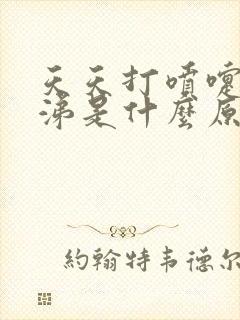 天天打噴嚏
涕是什麼原
約翰特韦德尔